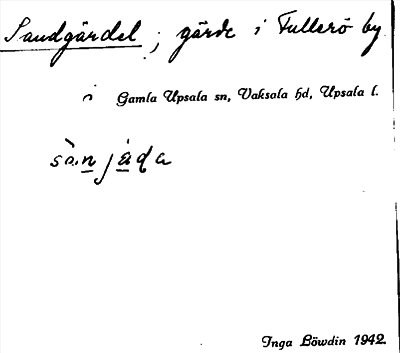 Sandgärdet, gärde i Fullerö by
i Gamla Upsala sn, Vaksala hd, Upsala l.
Inga Löwdin 1942.